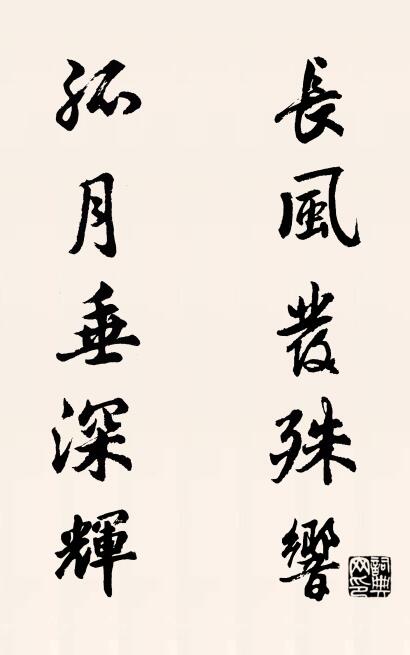 長風發殊響
孤月垂深輝
詞典網印